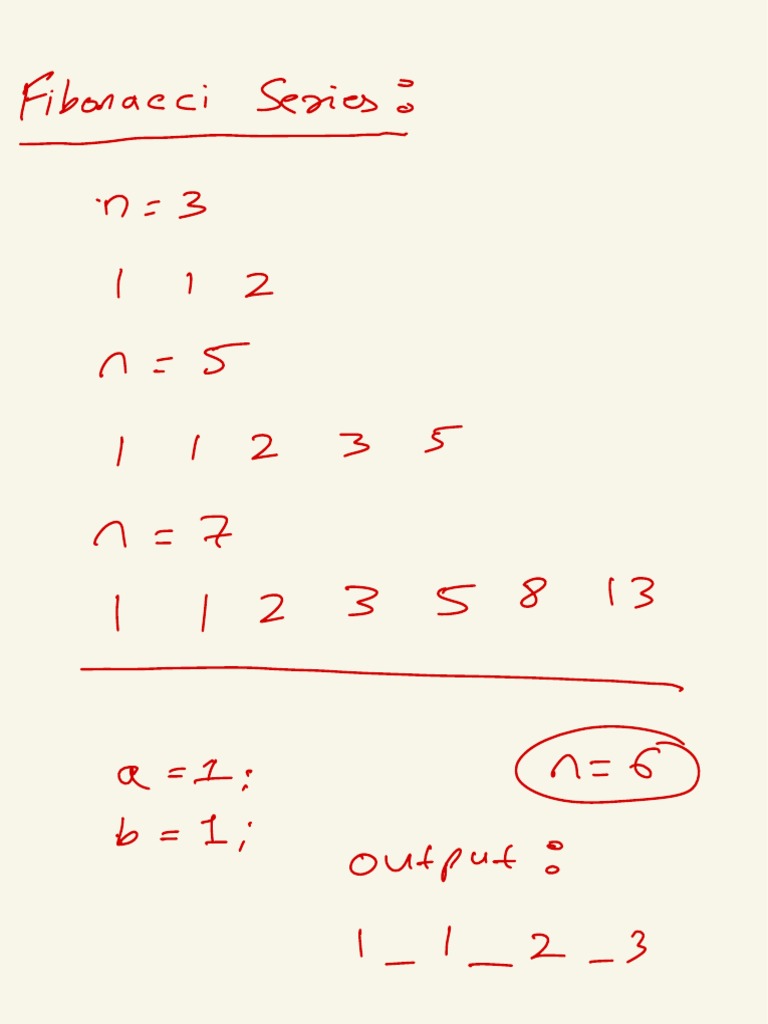 Fibonacci Series:
n = 3
1 1 2
n = 5
1 1 2 3 5
n = 7
1 1 2 3 5 8 13
a = 1;
n = 6
b = 1;
output :
1 _ 1 _ 2 _ 3